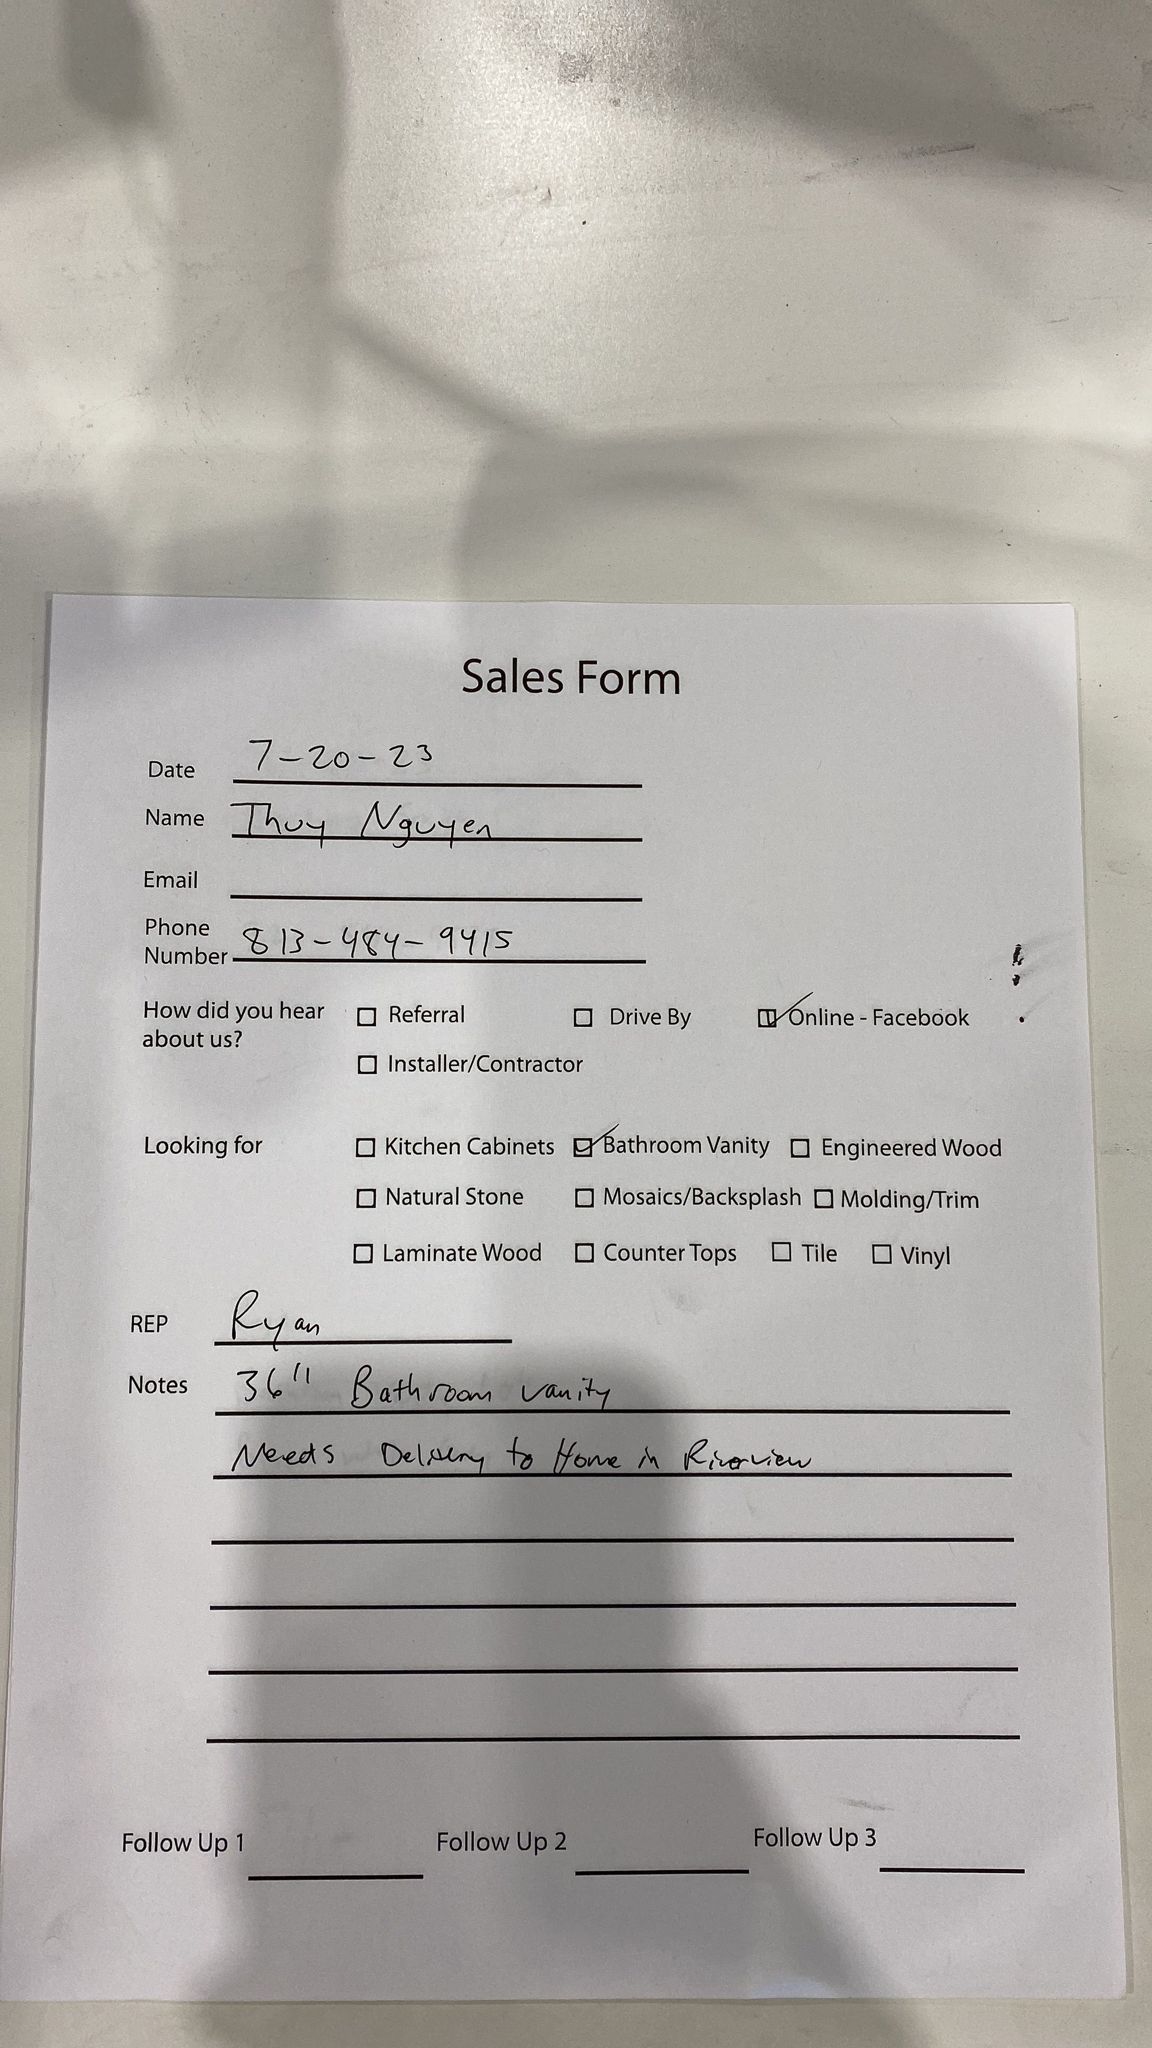 Sales Form
Date 7-20-23
Name Thuy Nguyen
Email
Phone
Number 813-484-9415
How did you hear
about us?
Referral Drive By Online - Facebook
Installer/Contractor
Looking for Kitchen Cabinets Bathroom Vanity Engineered Wood
Natural Stone Mosaics/Backsplash Molding/Trim
Laminate Wood Counter Tops Tile Vinyl
REP Ryan
Notes 36" Bathroom vanity
Needs Delivery to Home in Riverview
Follow Up 1 Follow Up 2 Follow Up 3